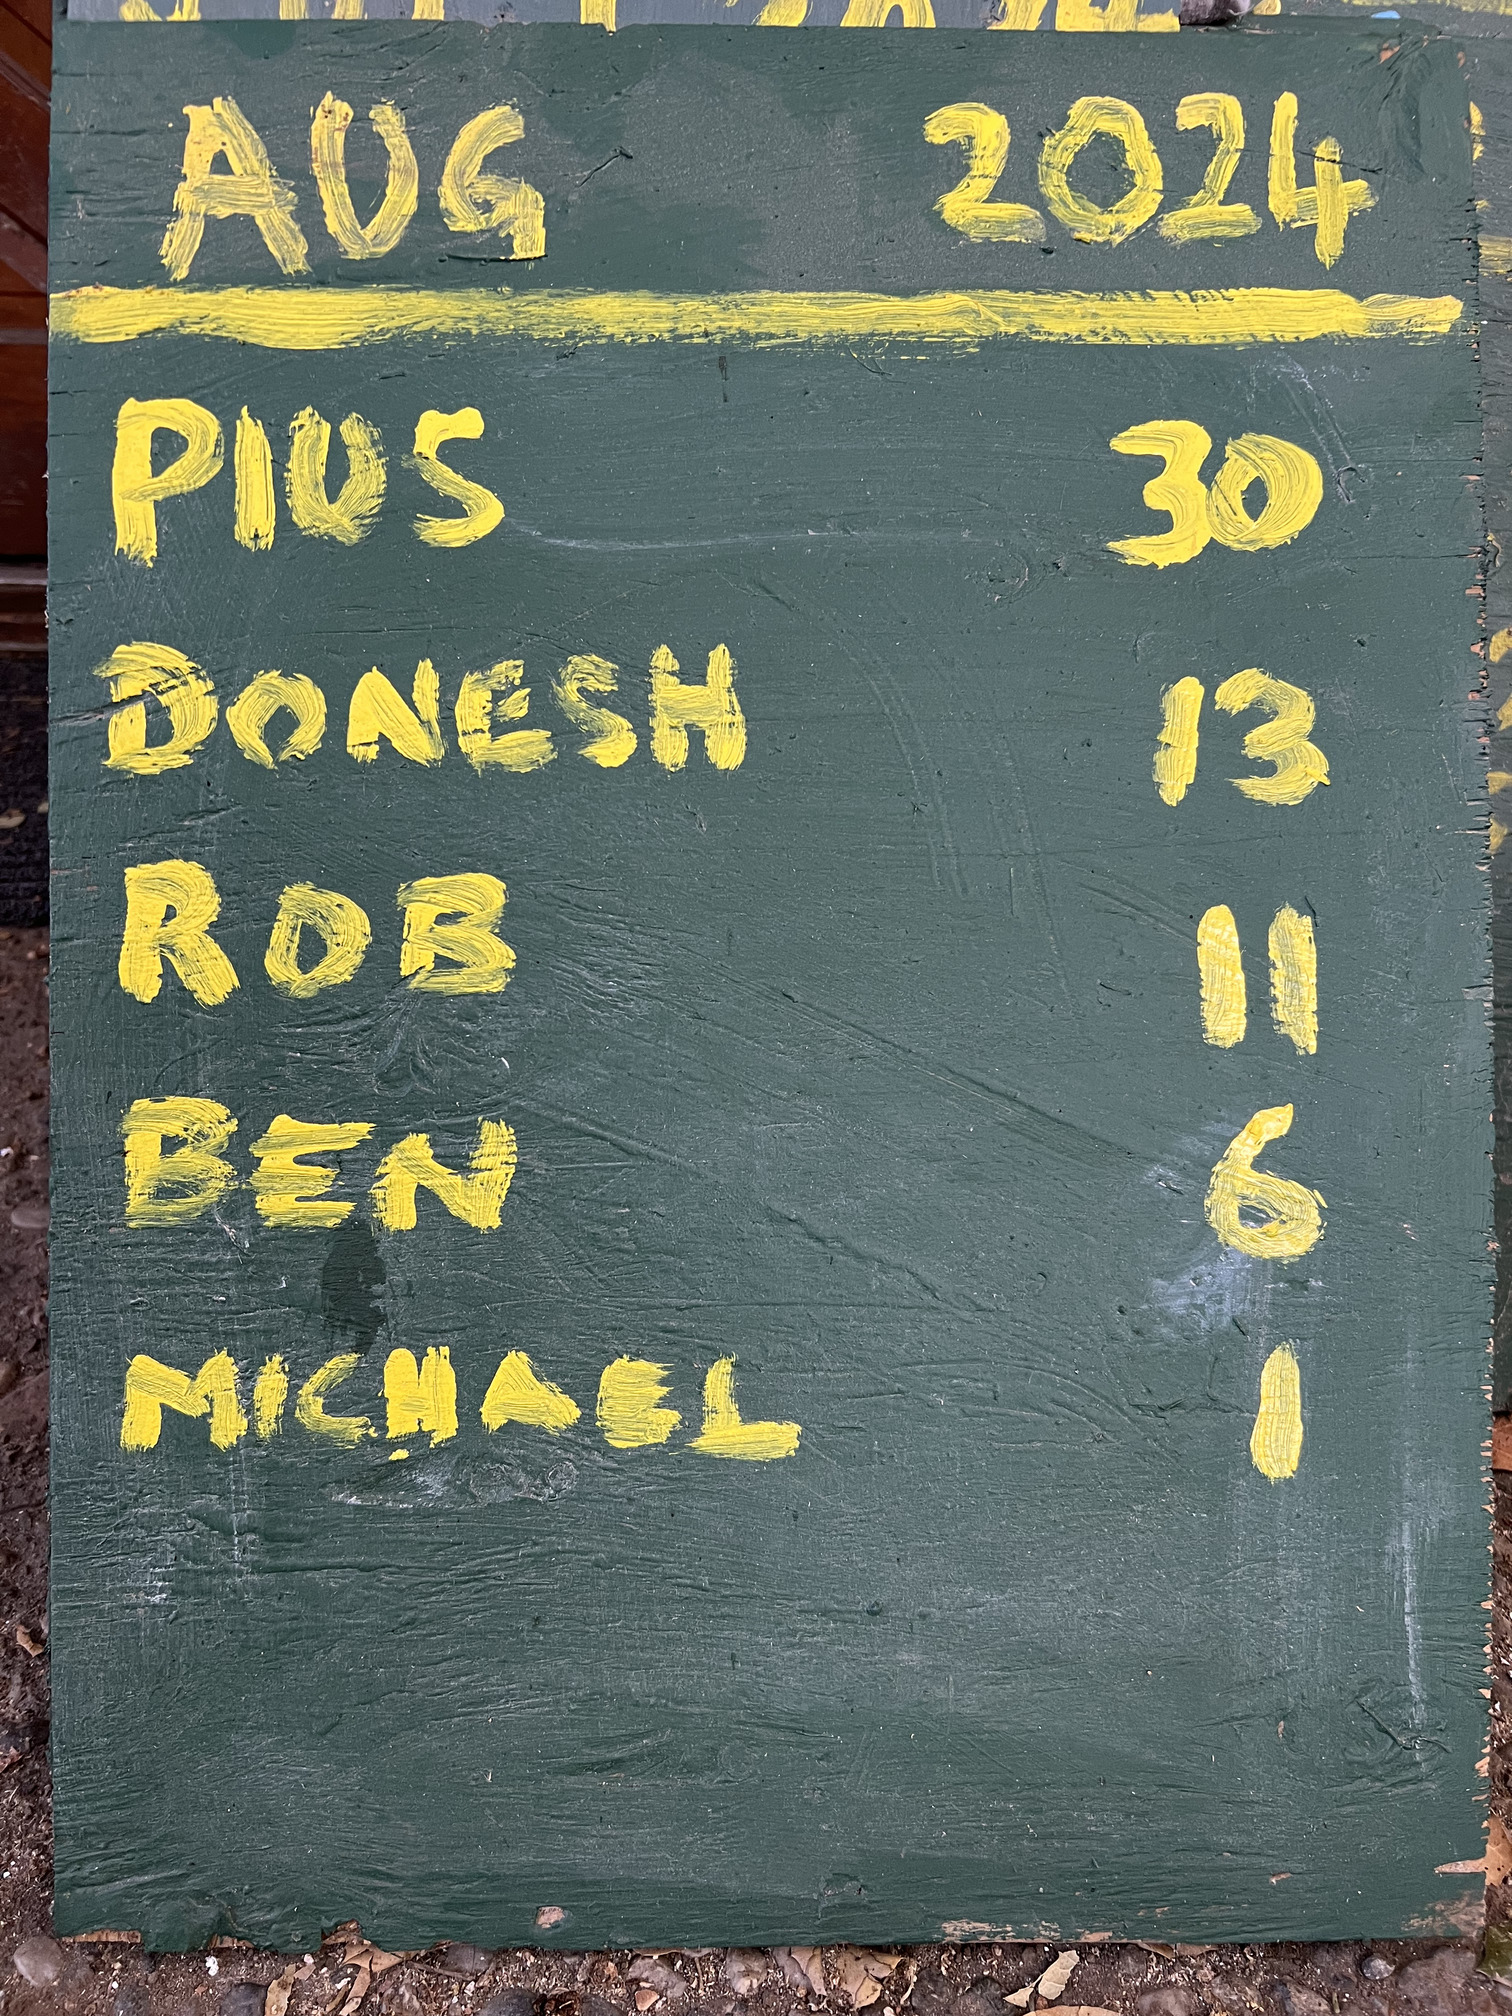 AUG 2024
PIUS 30
DONESH 13
ROB 11
BEN 6
MICHAEL 1